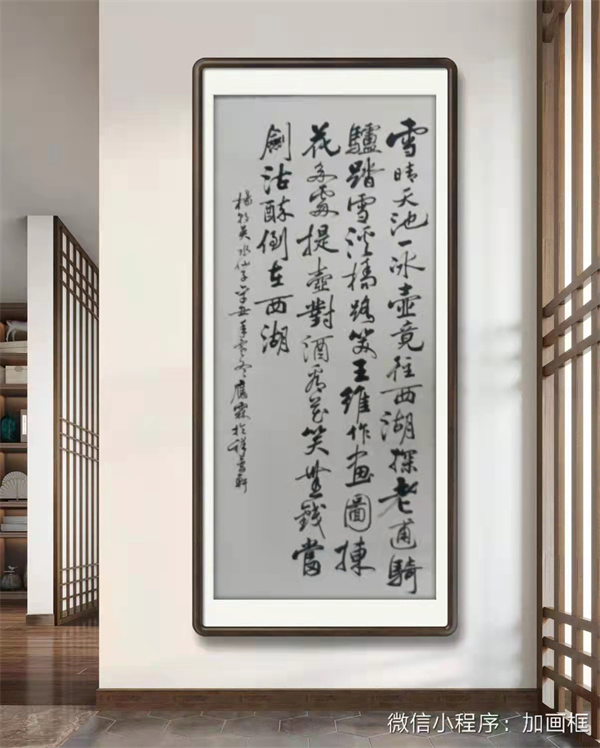 雪晴天池一冰壺竟往西湖探老逋騎
驢踏雪溪橋路笑王維作畫圖揀
花多處提壺對酒看花笑無錢當
劍沽醉倒在西湖
楊朝英水仙子辛丑年冬應霖於軒
微信小程序：加画框